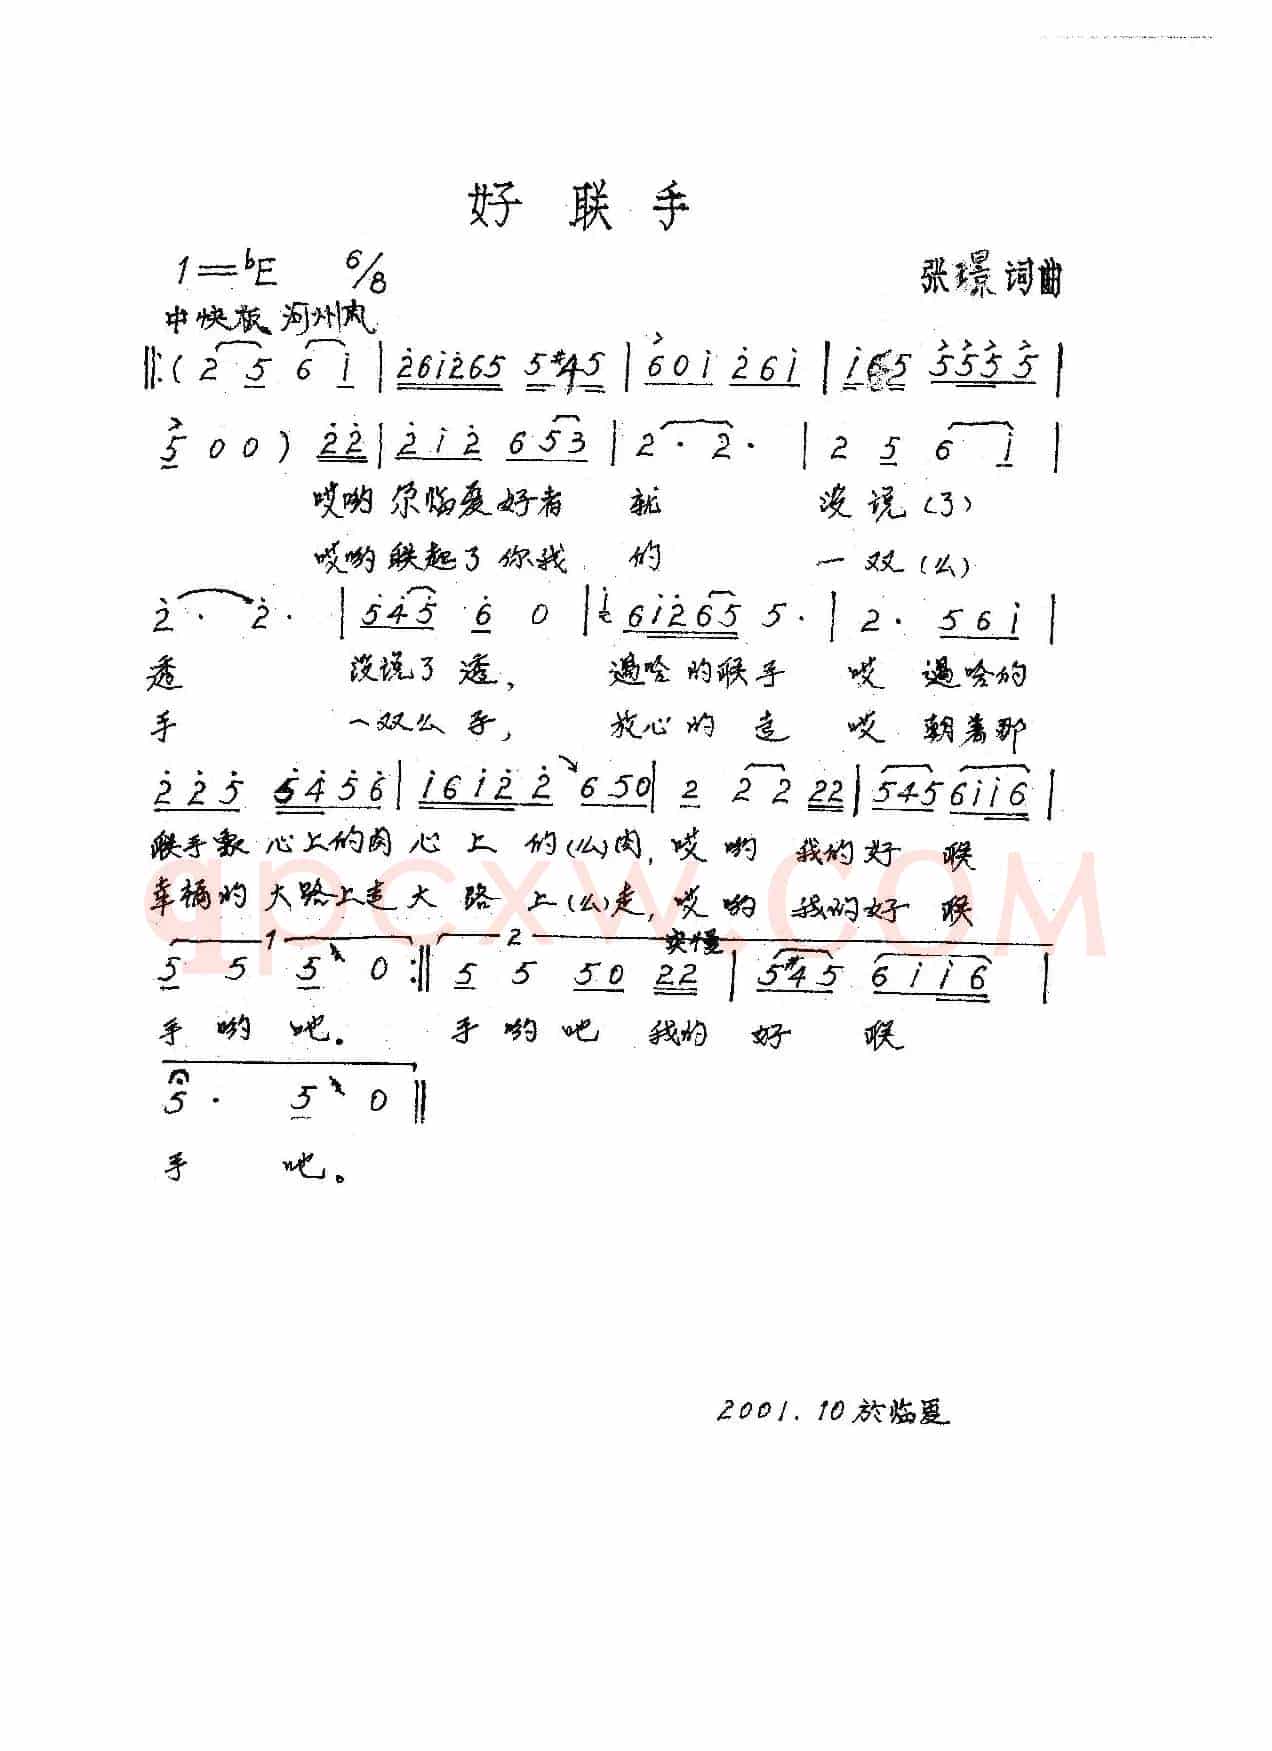 好联手
1=♭E 6/8
张璟词曲
中快板 河州风
‖:( 2 5 6 i | 26i265 5#45 | 60i 26i | i65 5555 |
5 0 0 ) 22 | 2i2 653 | 2· 2· | 2 5 6 i |
哎哟尕临夏好者 就 没说(了)
哎哟联起了你我 的 一双(么)
2· 2· | 545 6 0 | i 6i265 5· | 2· 56i |
透 没说了透, 遇啥的联手 哎 遇啥的
手 一双么手, 放心的走 哎 朝着那
225 5456 | i6i2 2 650 | 2 2 2 22 | 545 6ii6 |
联手象 心上的肉 心上的(么)肉, 哎哟 我的好联
幸福的 大路上走大路上(么)走, 哎哟 我的好联
1 2 突慢
5 5 5 0 :‖ 5 5 50 22 | 5#45 6ii6 |
手哟吔。 手哟吔 我的好联
5· 5 0 ‖
手 吔。
2001.10於临夏
qpcxw.COM